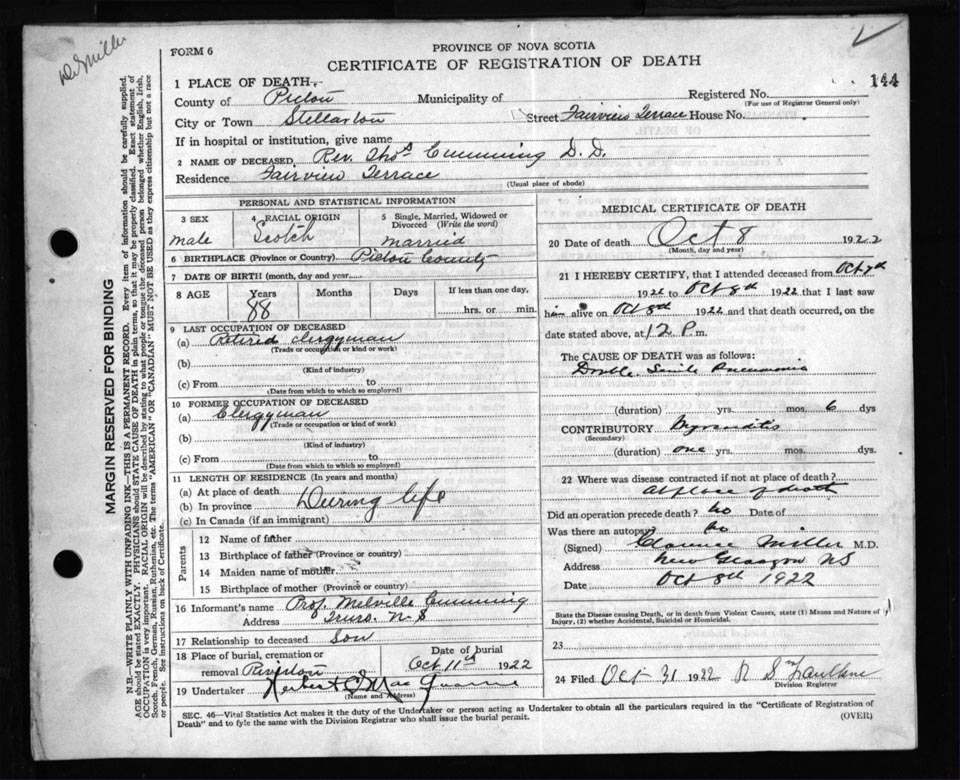 D S Miller
FORM 6
PROVINCE OF NOVA SCOTIA
CERTIFICATE OF REGISTRATION OF DEATH
144
1 PLACE OF DEATH
County of Pictou Municipality of Registered No.
(For use of Registrar General only)
City or Town Stellarton Street Fairview Terrace House No.
If in hospital or institution, give name
2 NAME OF DECEASED, Rev. Thos Cumming D.D.
Residence Fairview Terrace
(Usual place of abode)
PERSONAL AND STATISTICAL INFORMATION
3 SEX 4 RACIAL ORIGIN 5 Single, Married, Widowed or Divorced (Write the word)
male Scotch married
6 BIRTHPLACE (Province or Country) Pictou County
7 DATE OF BIRTH (month, day and year)
8 AGE Years Months Days If less than one day,
88 hrs. or min.
9 LAST OCCUPATION OF DECEASED
(a) Retired clergyman
(Trade or occupation or kind or work)
(b)
(Kind of industry)
(c) From to
(Date from which to which so employed)
10 FORMER OCCUPATION OF DECEASED
(a) Clergyman
(Trade or occupation or kind of work)
(b)
(Kind of industry)
(c) From to
(Date from which to which so employed)
11 LENGTH OF RESIDENCE (In years and months)
(a) At place of death
(b) In province During life
(c) In Canada (if an immigrant)
Parents
12 Name of father
13 Birthplace of father (Province or country)
14 Maiden name of mother
15 Birthplace of mother (Province or country)
16 Informant's name Prof. Melville Cumming
Address Truro. N.S
17 Relationship to deceased Son
18 Place of burial, cremation or removal Date of burial
Oct 11th 1922
19 Undertaker
(Name and Address)
MEDICAL CERTIFICATE OF DEATH
20 Date of death Oct 8 1922
(Month, day and year)
21 I HEREBY CERTIFY, that I attended deceased from Oct 7th
1922 to Oct 8th 1922 that I last saw
him alive on Oct 8th 1922 and that death occurred, on the
date stated above, at 12 P.m.
The CAUSE OF DEATH was as follows:
Double Senile Pneumonia
(duration) yrs. mos. 6 dys
CONTRIBUTORY
(Secondary)
(duration) one yrs. mos. dys.
22 Where was disease contracted if not at place of death?
At place of death
Did an operation precede death? No Date of
Was there an autopsy? No
(Signed) Clarence Miller M.D.
Address New Glasgow NS
Date Oct 8th 1922
State the Disease causing Death, or in death from Violent Causes, state (1) Means and Nature of Injury, (2) whether Accidental, Suicidal or Homicidal.
23
24 Filed Oct 31 1922
Division Registrar
SEC. 46—Vital Statistics Act makes it the duty of the Undertaker or person acting as Undertaker to obtain all the particulars required in the "Certificate of Registration of
Death" and to fyle the same with the Division Registrar who shall issue the burial permit.
(OVER)
MARGIN RESERVED FOR BINDING
N.B.—WRITE PLAINLY WITH UNFADING INK—THIS IS A PERMANENT RECORD. Every item of information should be carefully supplied.
AGE should be stated EXACTLY. PHYSICIANS should STATE CAUSE OF DEATH in plain terms, so that it may be properly classified. Exact statement of
OCCUPATION is very important. RACIAL ORIGIN will be described by stating to what people or tongue the deceased person belonged whether English, Irish,
Scotch, French, German, Russian, Ruthenian, etc. The terms "AMERICAN" or "CANADIAN" MUST NOT BE USED as they express citizenship but not a race
or people. See instructions on back of Certificate.